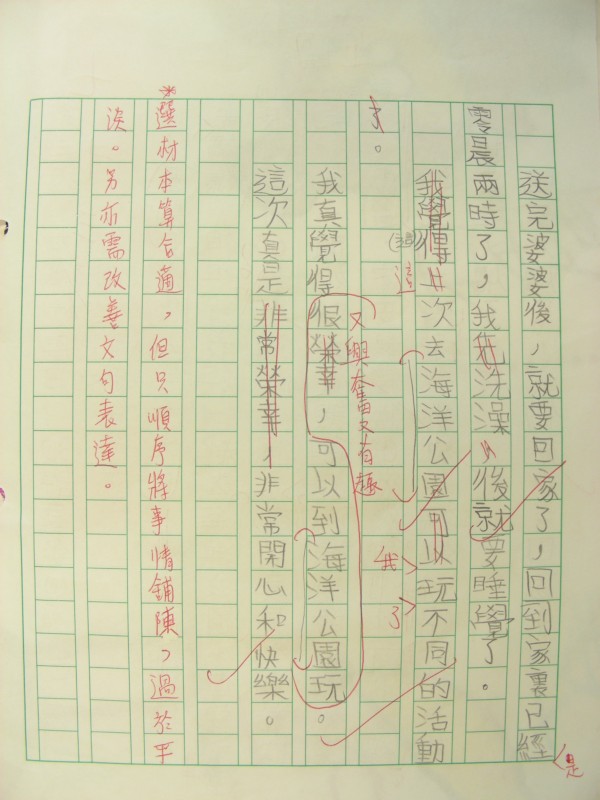 送完婆婆後，就要回家了，回到家裏已經
是
零晨兩時了，我洗澡後就要睡覺了。
我覺得次去海洋公園可以玩不同的活動
這
我
了
又興奮又有趣
我真覺得很榮幸，可以到海洋公園玩。
這次真是非常榮幸，非常開心和快樂。
選材本算合適，但只順序將事情鋪陳，過於平
淡。另亦需改善文句表達。